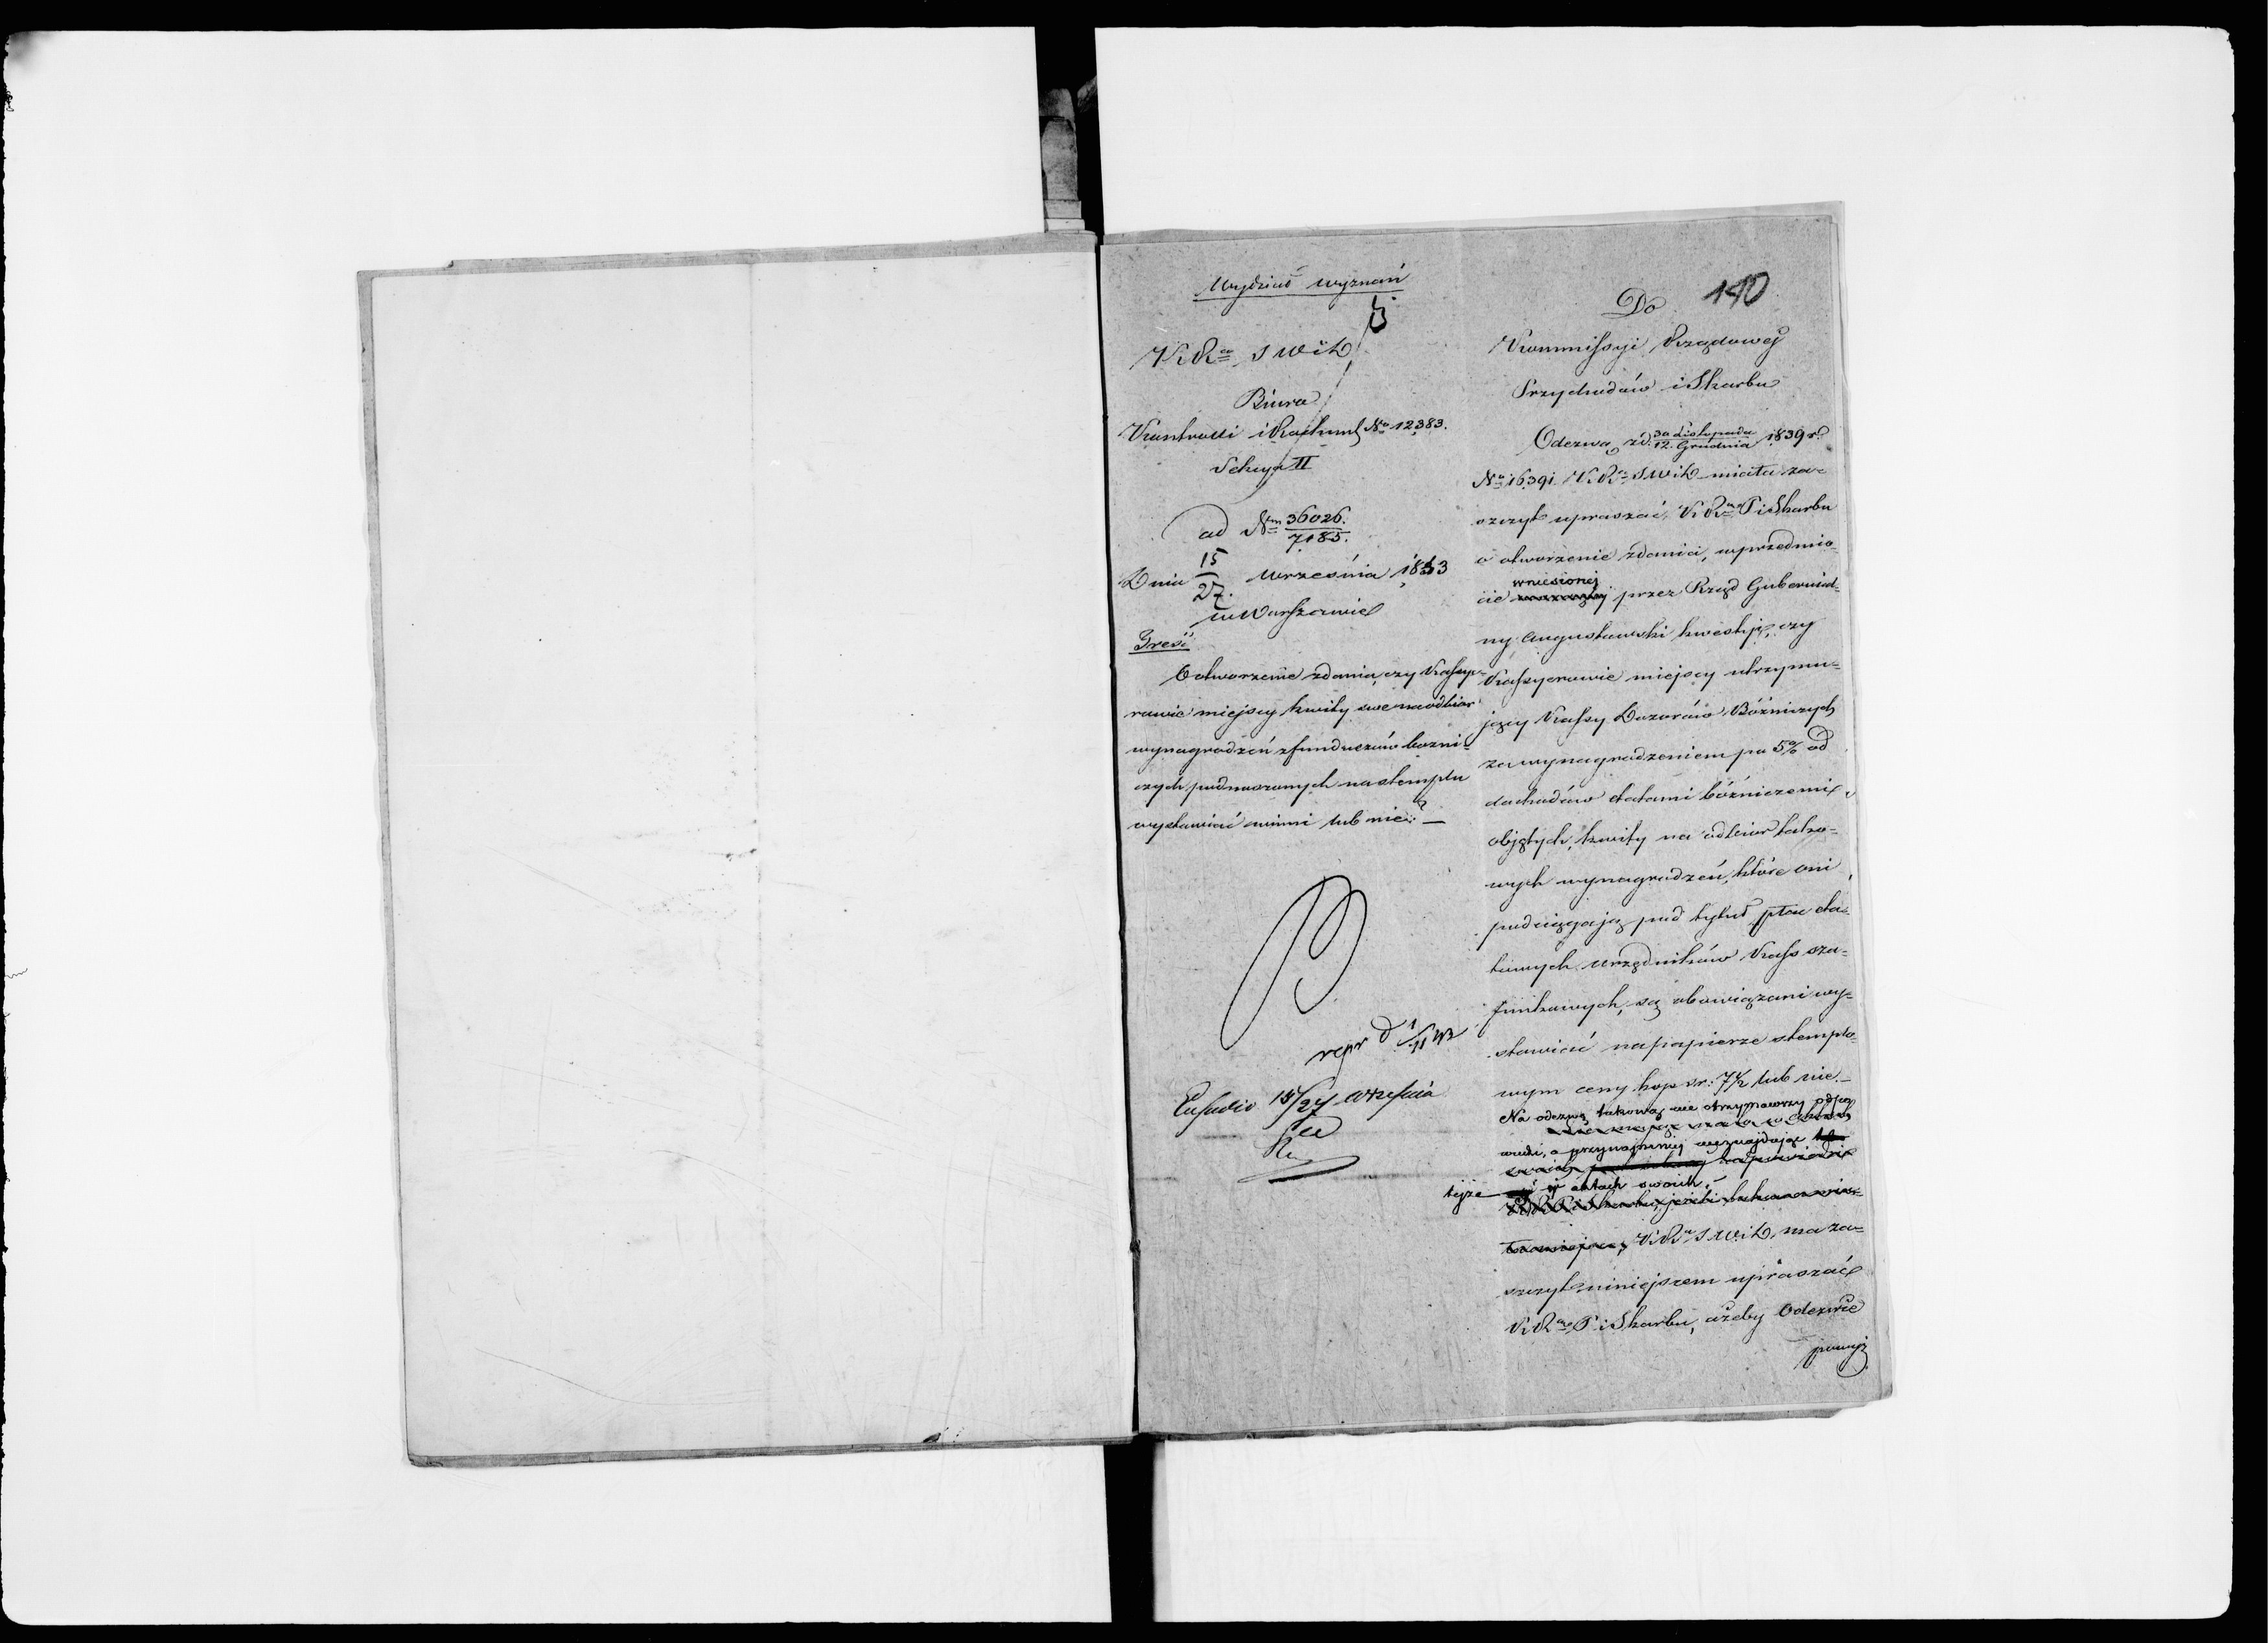 Wydział wyznań
K. R. S W i D
Biura
Kontrolli i Rachunk No 12,383.
Sekcya II
ad Nrm 36026. / 7185.
Dnia 15/27. Września 1843
w Warszawie
Treść
O otworzenie zdania, czy Kassye-
rowie miejscy kwity swe na odbiór
wynagrodzeń z funduszów bożni-
czych podnoszonych na stemplu
wystawiać winni lub nie? —
Exped 15/27 Września
110
Do
Kommissyi Rządowej
Przychodów i Skarbu
Odezwą z d. 30 Listopada / 12 Grudnia 1839 r.
No 16,391. K. R. S W i D miała za-
szczyt upraszać K. R. P. i Skarbu
o otworzenie zdania, w przedmio-
cie wniesionej przez Rząd Gubernial-
ny Augustowski kwestyi, czy
Kassyerowie miejscy utrzymu-
jący Kassy Dozorów Bóżniczych
za wynagrodzeniem po 5% od
dochodów etatami bóżniczemi
objętych, kwity na odbiór tako-
wych wynagrodzeń, które oni
podciągają pod tytuł płac eta-
towych Urzędników Kass sza-
funkowych, są obowiązani wy-
stawiać na papierze stemplo-
wym ceny kop. sr. 7½ lub nie. —
Na odezwę takową nie otrzymawszy odpo
wiedzi, a przynajmniej nie znajdując
tejże w aktach swoich,
K. R. S W i D, ma za-
szczyt niniejszem upraszać
K. R. P. i Skarbu, ażeby Odezwie
powyż